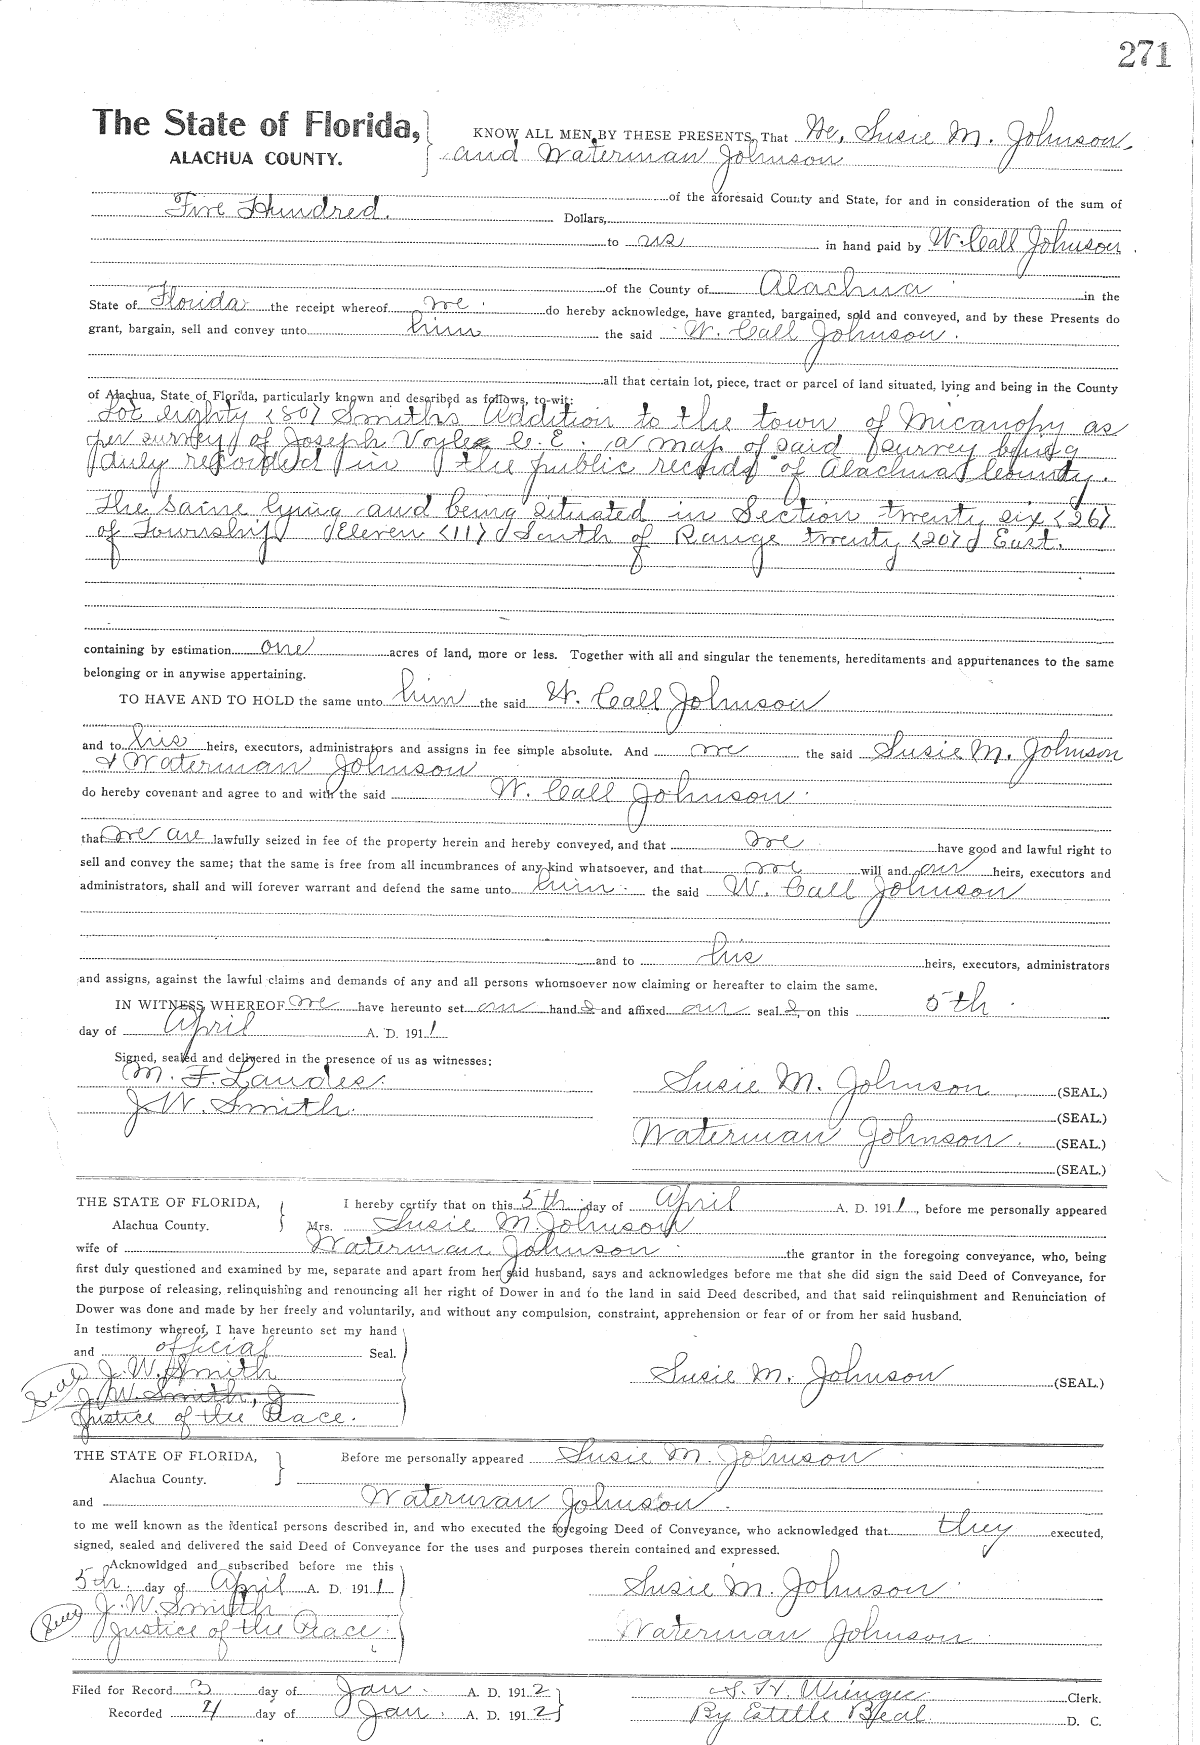 271
The State of Florida, KNOW ALL MEN BY THESE PRESENTS, That We, Susie M. Johnson
ALACHUA COUNTY. and Waterman Johnson
of the aforesaid County and State, for and in consideration of the sum of
Five Hundred. Dollars,
to us in hand paid by W. Call Johnson.
of the County of Alachua in the
State of Florida the receipt whereof we do hereby acknowledge, have granted, bargained, sold and conveyed, and by these Presents do
grant, bargain, sell and convey unto him the said W. Call Johnson.
all that certain lot, piece, tract or parcel of land situated, lying and being in the County
of Alachua, State of Florida, particularly known and described as follows, to-wit:
Lot eighty (80) Smiths Addition to the town of Micanopy as
per survey of Joseph Voyle C. E. a map of said survey being
duly recorded in the public records of Alachua County.
The same lying and being situated in Section twenty six (26)
of Township Eleven (11) South of Range twenty (20) East.
containing by estimation one acres of land, more or less. Together with all and singular the tenements, hereditaments and appurtenances to the same
belonging or in anywise appertaining.
TO HAVE AND TO HOLD the same unto him the said W. Call Johnson
and to his heirs, executors, administrators and assigns in fee simple absolute. And we the said Susie M. Johnson
& Waterman Johnson
do hereby covenant and agree to and with the said W. Call Johnson.
that we are lawfully seized in fee of the property herein and hereby conveyed, and that we have good and lawful right to
sell and convey the same; that the same is free from all incumbrances of any kind whatsoever, and that we will and our heirs, executors and
administrators, shall and will forever warrant and defend the same unto him the said W. Call Johnson
and to his heirs, executors, administrators
and assigns, against the lawful claims and demands of any and all persons whomsoever now claiming or hereafter to claim the same.
IN WITNESS WHEREOF we have hereunto set our hands and affixed our seals, on this 5th
day of April A. D. 1911
Signed, sealed and delivered in the presence of us as witnesses:
M. F. Landes. Susie M. Johnson (SEAL.)
J. W. Smith. (SEAL.)
Waterman Johnson. (SEAL.)
(SEAL.)
THE STATE OF FLORIDA, I hereby certify that on this 5th day of April A. D. 1911, before me personally appeared
Alachua County. Mrs. Susie M. Johnson
wife of Waterman Johnson the grantor in the foregoing conveyance, who, being
first duly questioned and examined by me, separate and apart from her said husband, says and acknowledges before me that she did sign the said Deed of Conveyance, for
the purpose of releasing, relinquishing and renouncing all her right of Dower in and to the land in said Deed described, and that said relinquishment and Renunciation of
Dower was done and made by her freely and voluntarily, and without any compulsion, constraint, apprehension or fear of or from her said husband.
In testimony whereof, I have hereunto set my hand
and official Seal.
Seal J. W. Smith Susie M. Johnson (SEAL.)
J. W. Smith, J
Justice of the Peace.
THE STATE OF FLORIDA, Before me personally appeared Susie M. Johnson
Alachua County.
and Waterman Johnson.
to me well known as the identical persons described in, and who executed the foregoing Deed of Conveyance, who acknowledged that they executed,
signed, sealed and delivered the said Deed of Conveyance for the uses and purposes therein contained and expressed.
Acknowldged and subscribed before me this
5th. day of April A. D. 1911 Susie M. Johnson
Seal J. W. Smith
Justice of the Peace. Waterman Johnson
Filed for Record 3 day of Jan. A. D. 1912 S. H. Wienges Clerk.
Recorded 4 day of Jan. A. D. 1912 By Estelle Beal. D. C.